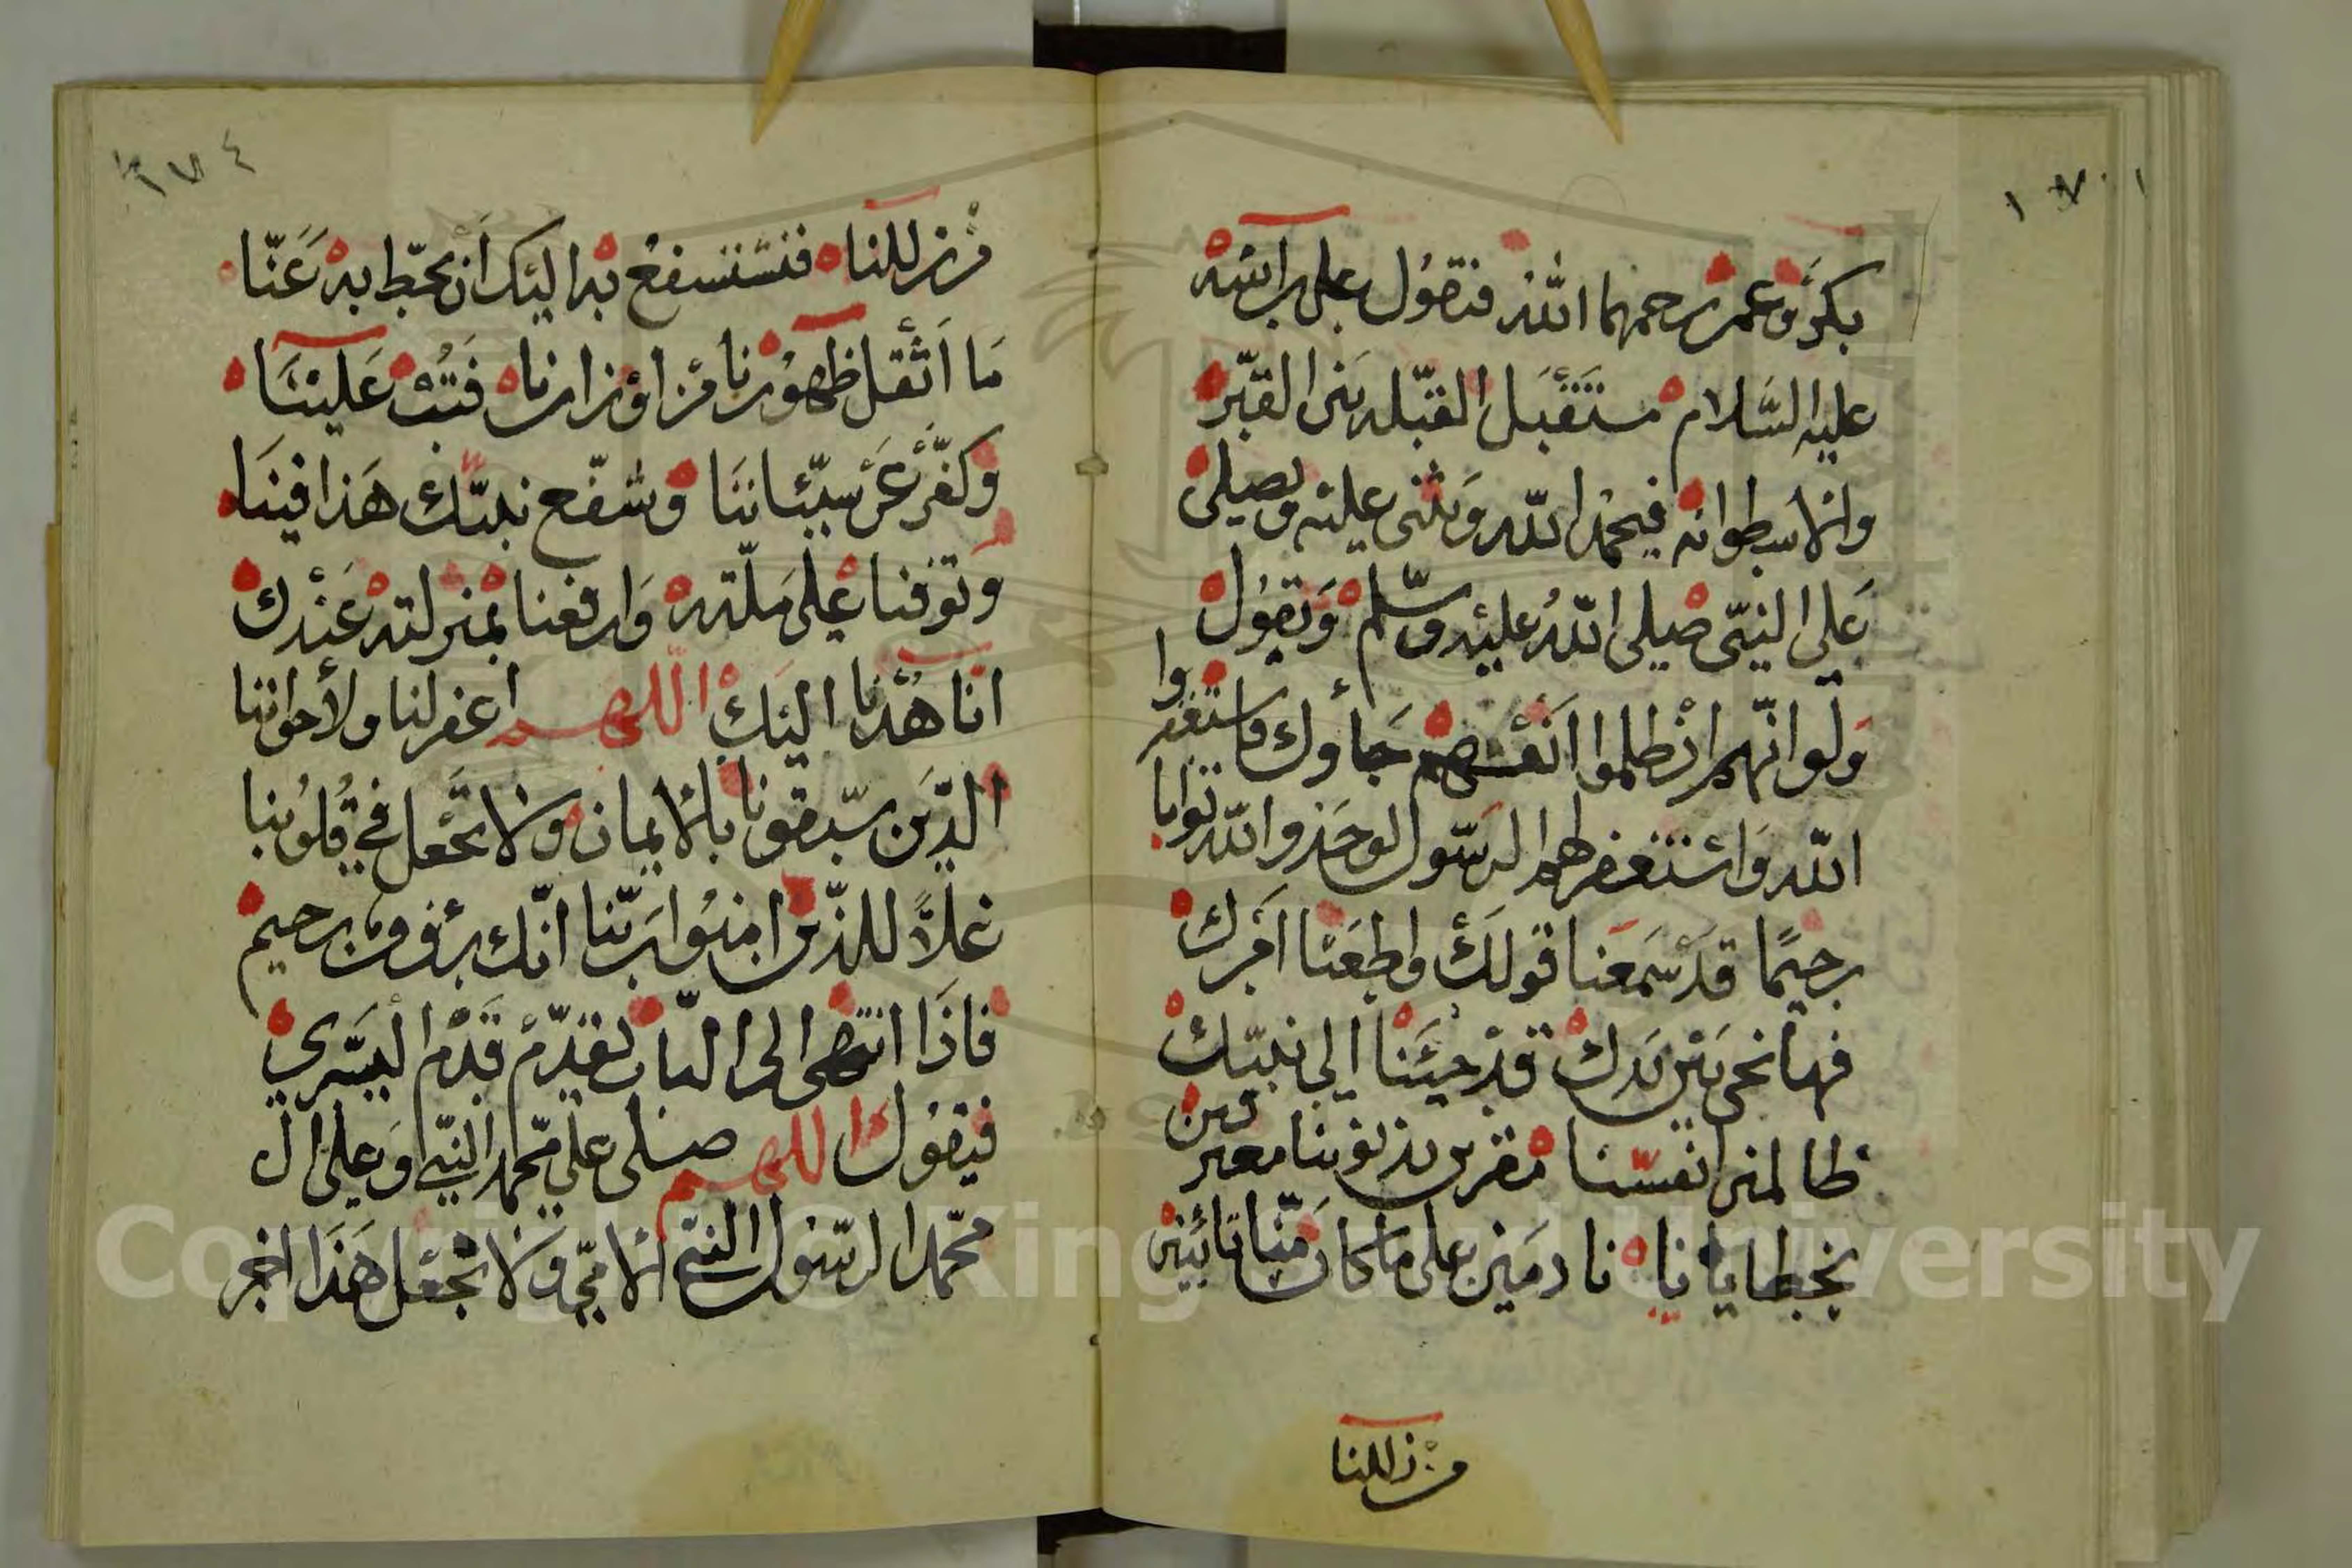 بكر وعمر رحمهما الله فتقول على رأسه
عليه السلام مستقبل القبله بين القبر
والاسطوانه فيحمد الله ويثنى عليه ويصلى
على النبي صلى الله عليه وسلم وتقول
ولو انهم اذ ظلموا انفسهم جاؤك فاستغفروا
الله واستغفر لهم الرسول لوجدوا الله توابا
رحيما قد سمعنا قولك واطعنا امرك
فها نحن بين يدك قد جيئنا الى نبيك
ظالمين انفسنا مقرين بذنوبنا معترفين
بخطايانا نادمين على ما كان منا تائبين
من زللنا
من زللنا فنستشفع به اليك ان تحط به عنا
ما اثقل ظهورنا من اوزارنا فتب علينا
وكفر عن سيئاتنا وشفع نبيك هذا فينا
وتوفنا على ملته وارفعنا بمنزلته عندك
انا هدنا اليك اللهم اغفر لنا ولأخواننا
الذين سبقونا بالايمان ولا تجعل في قلوبنا
غلا للذين امنوا ربنا انك رؤوف رحيم
فاذا انتهى الى الباب تقدم قدم اليسرى
فيقول اللهم صلى على محمد النبي وعلى ال
محمد الرسول النبي الامي ولا تجعل هذا اخر
Copyright © King Saud University